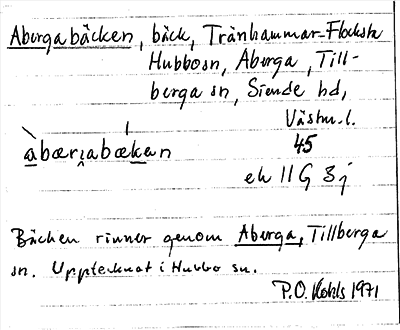 Abergabäcken, bäck, Tränhammar-Flocksta
Hubbo sn, Aberga, Till-
berga sn, Siende hd,
Västm.l.
àbærjabækan
45
ek 11 G 3 j
Bäcken rinner genom Aberga, Tillberga
sn. Upptecknat i Hubbo sn.
P.O. Kohls 1971